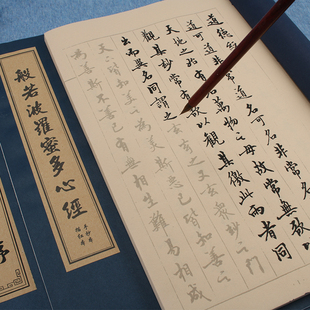 道德經
道可道非常道名可名非常名無名
天地之始有名萬物之母故常無欲以
觀其妙常有欲以觀其徼此兩者同
出而異名同謂之玄玄之又玄眾妙之門
天下皆知美之為美斯惡已皆知善之
為善斯不善已有無相生難易相成
般若波羅蜜多心經
序